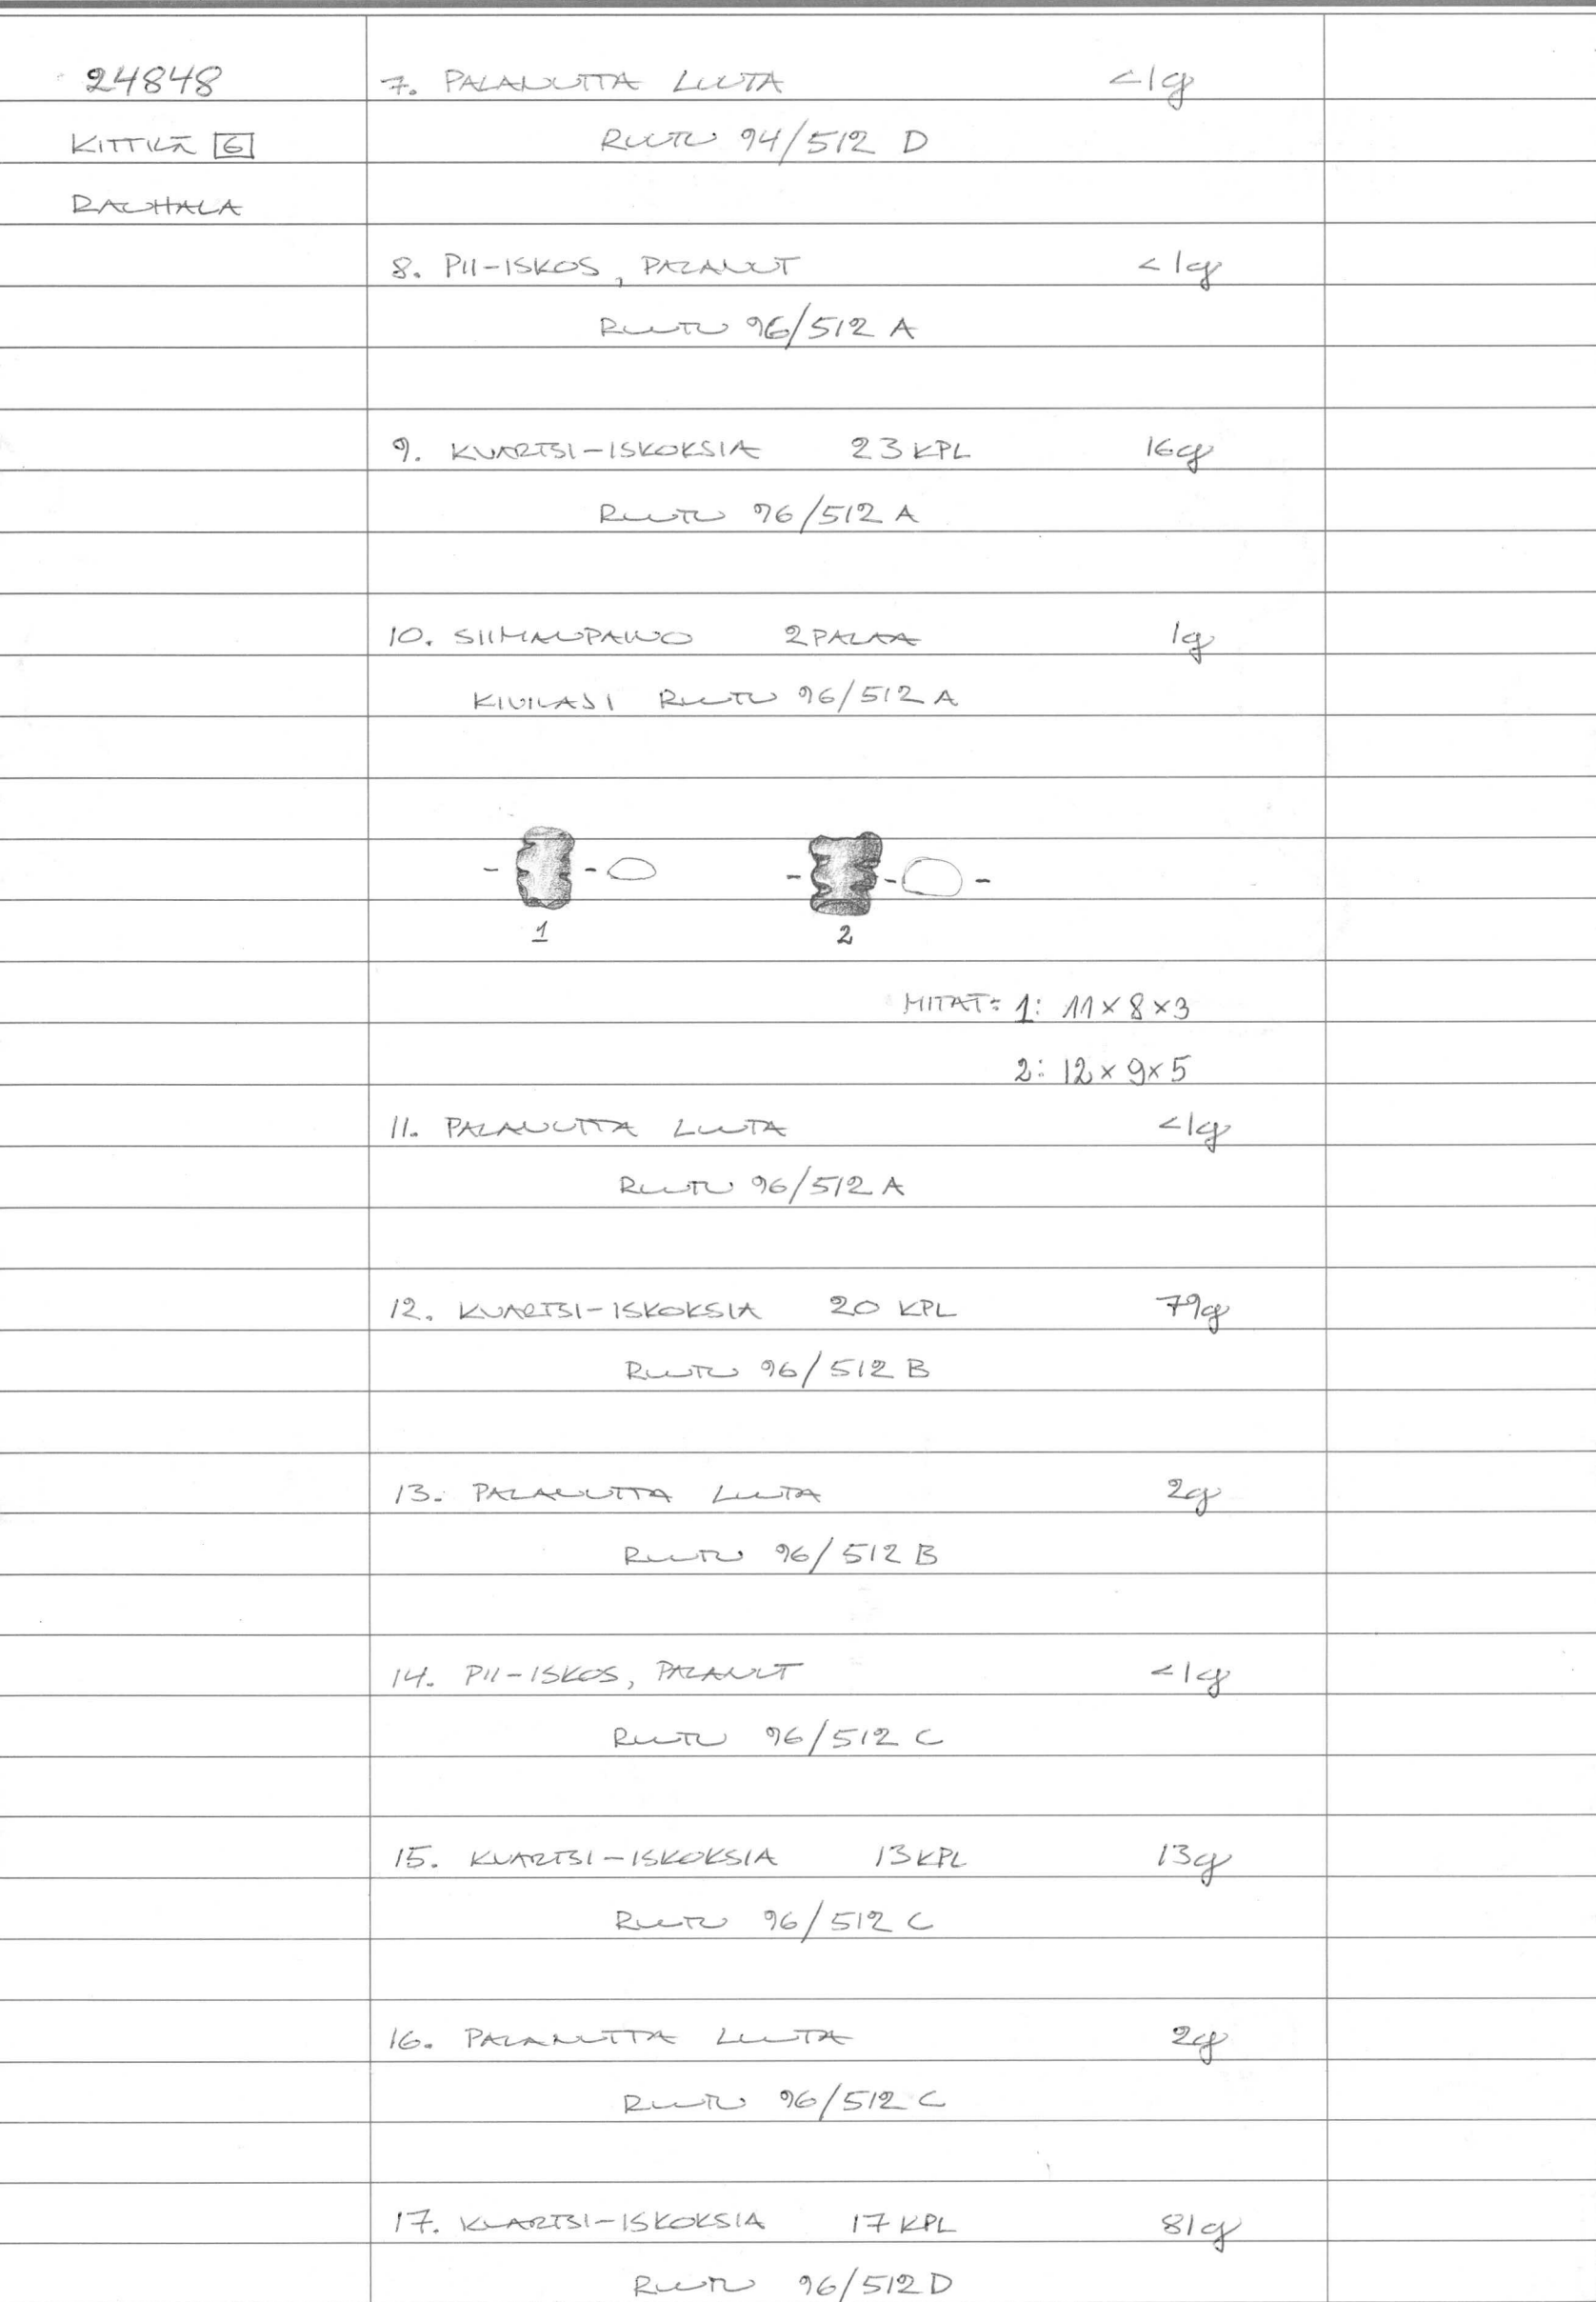 24848
KITTILÄ 6
RAUHALA
7. PALANUTTA LUUTA <1g
RUUTU 94/512 D
8. PII-ISKOS, PALANUT <1g
RUUTU 96/512 A
9. KVARTSI-ISKOKSIA 23 KPL 16g
RUUTU 96/512 A
10. SIIMANPAINO 2 PALAA 1g
KIVILAJI RUUTU 96/512 A
1 2
MITAT: 1: 11×8×3
2: 12×9×5
11. PALANUTTA LUUTA <1g
RUUTU 96/512 A
12. KVARTSI-ISKOKSIA 20 KPL 79g
RUUTU 96/512 B
13. PALANUTTA LUUTA 2g
RUUTU 96/512 B
14. PII-ISKOS, PALANUT <1g
RUUTU 96/512 C
15. KVARTSI-ISKOKSIA 13 KPL 13g
RUUTU 96/512 C
16. PALANUTTA LUUTA 2g
RUUTU 96/512 C
17. KVARTSI-ISKOKSIA 17 KPL 81g
RUUTU 96/512 D